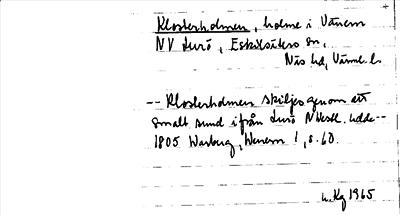 Klosterholmen, holme i Vänern
NV Lurö, Eskilsäters sn,
Näs hd, Värml. l.
-- Klosterholmen skiljes genom ett
smalt sund ifrån Lurö NVestl. udde --
1805 Warberg, Wenern 1, s. 60.
1965